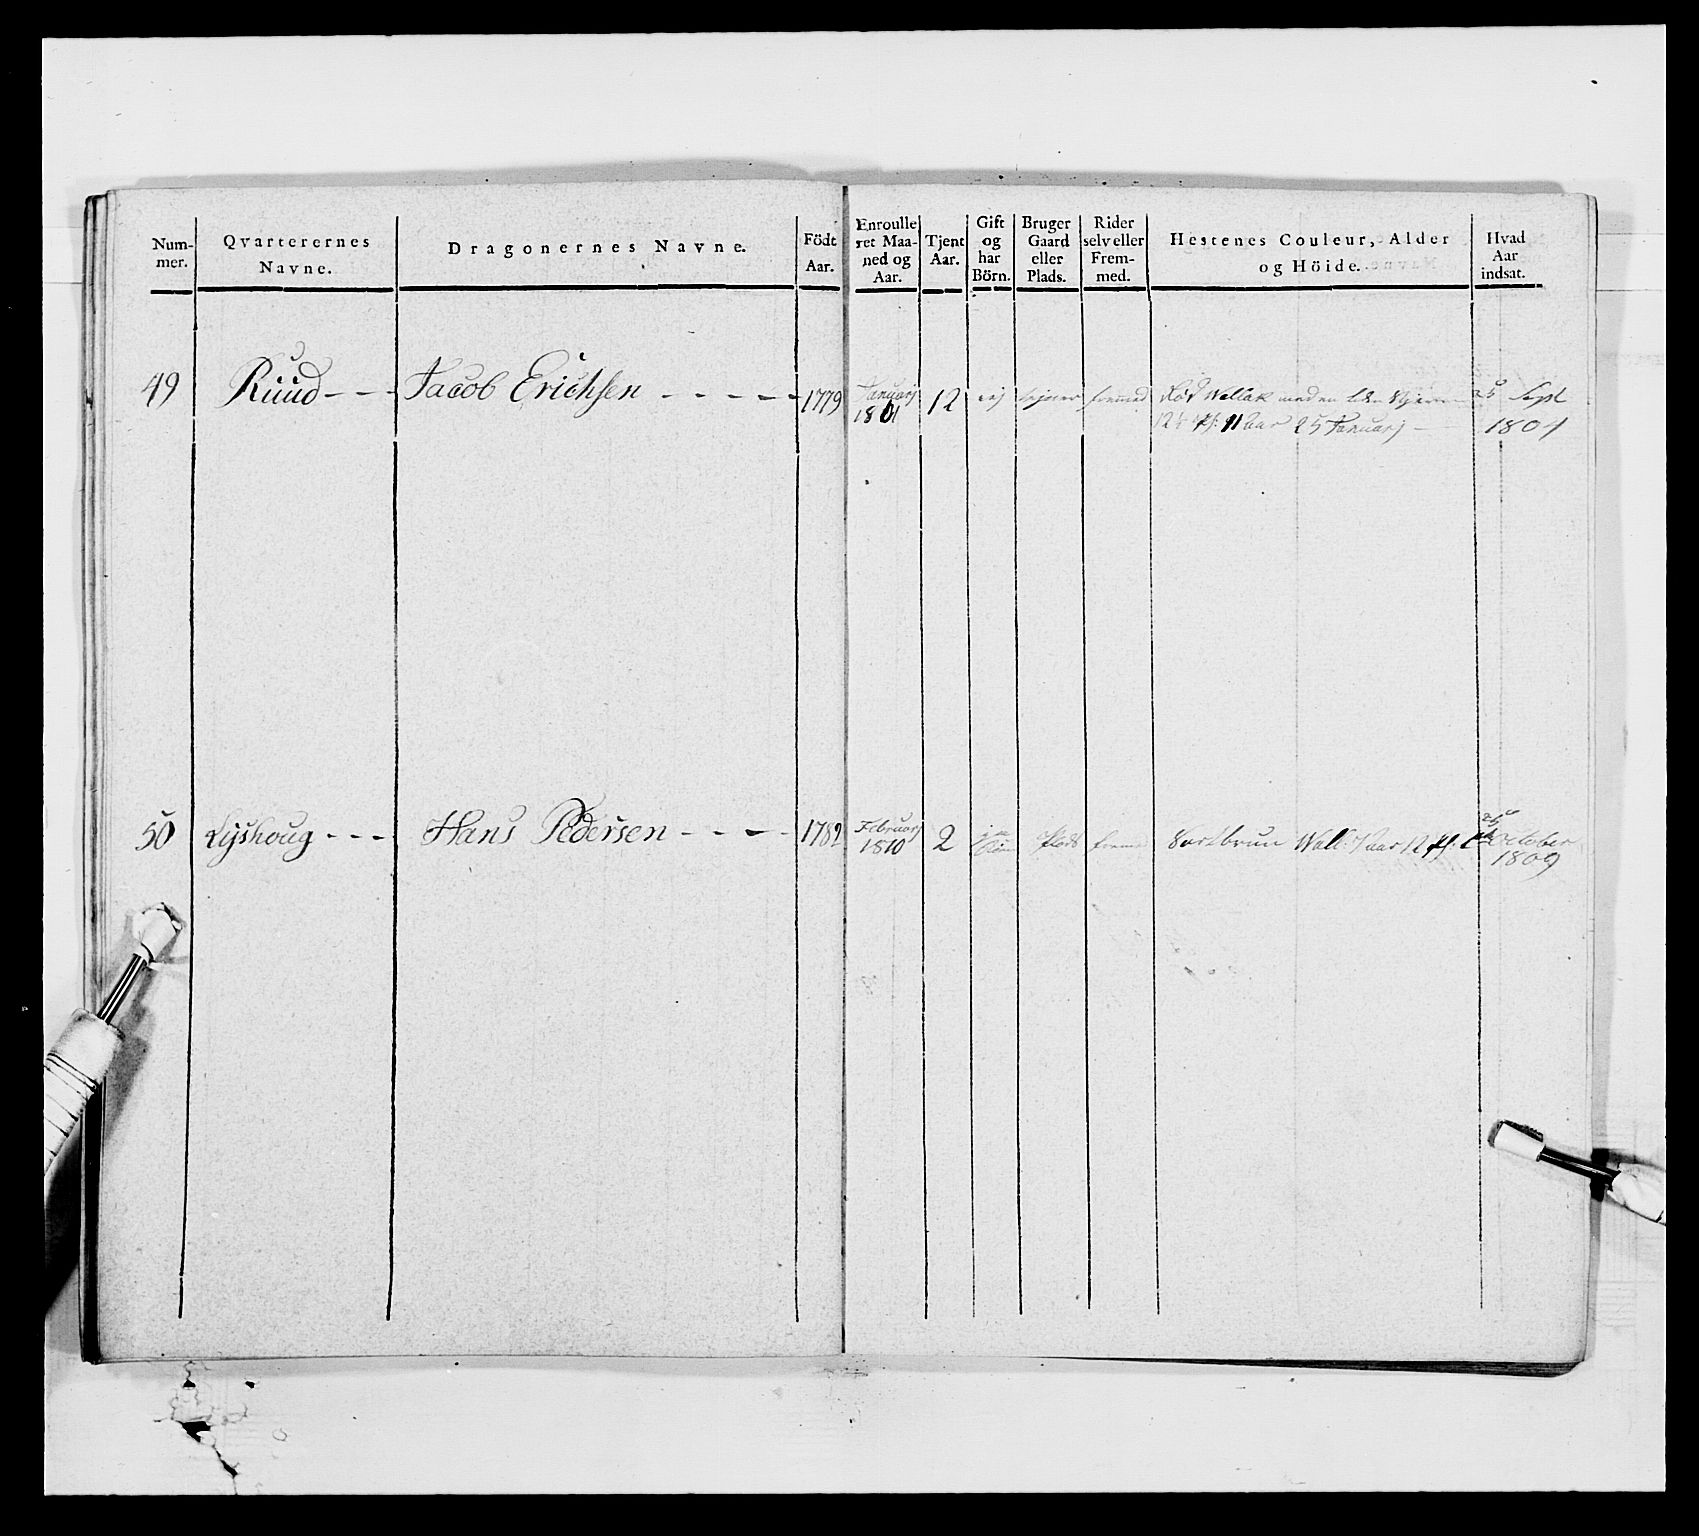 Num-
mer.
Qvarterernes
Navne.
Dragonernes Navne.
Födt
Aar.
Enroulle
ret Maa-
ned og
Aar.
Tjent
Aar.
Gift
og
har
Börn.
Bruger
Gaard
eller
Plads.
Rider
selv eller
Frem-
med.
Hestenes Couleur, Alder
og Höide.
Hvad
Aar
indsat.
49 Ruud - - - Jacob Erichsen - - - - - 1779 Januarj 12 ej fremed Rød Wallak med en liden Stjerne Sept
1801 11 Aar 25 Januarj 1804
50 Lyshoug - - - Hans Pedersen - - - - 1782 Februarj 2 Plads Sortbrun Wall: 7 aar 12 October
1810 1809